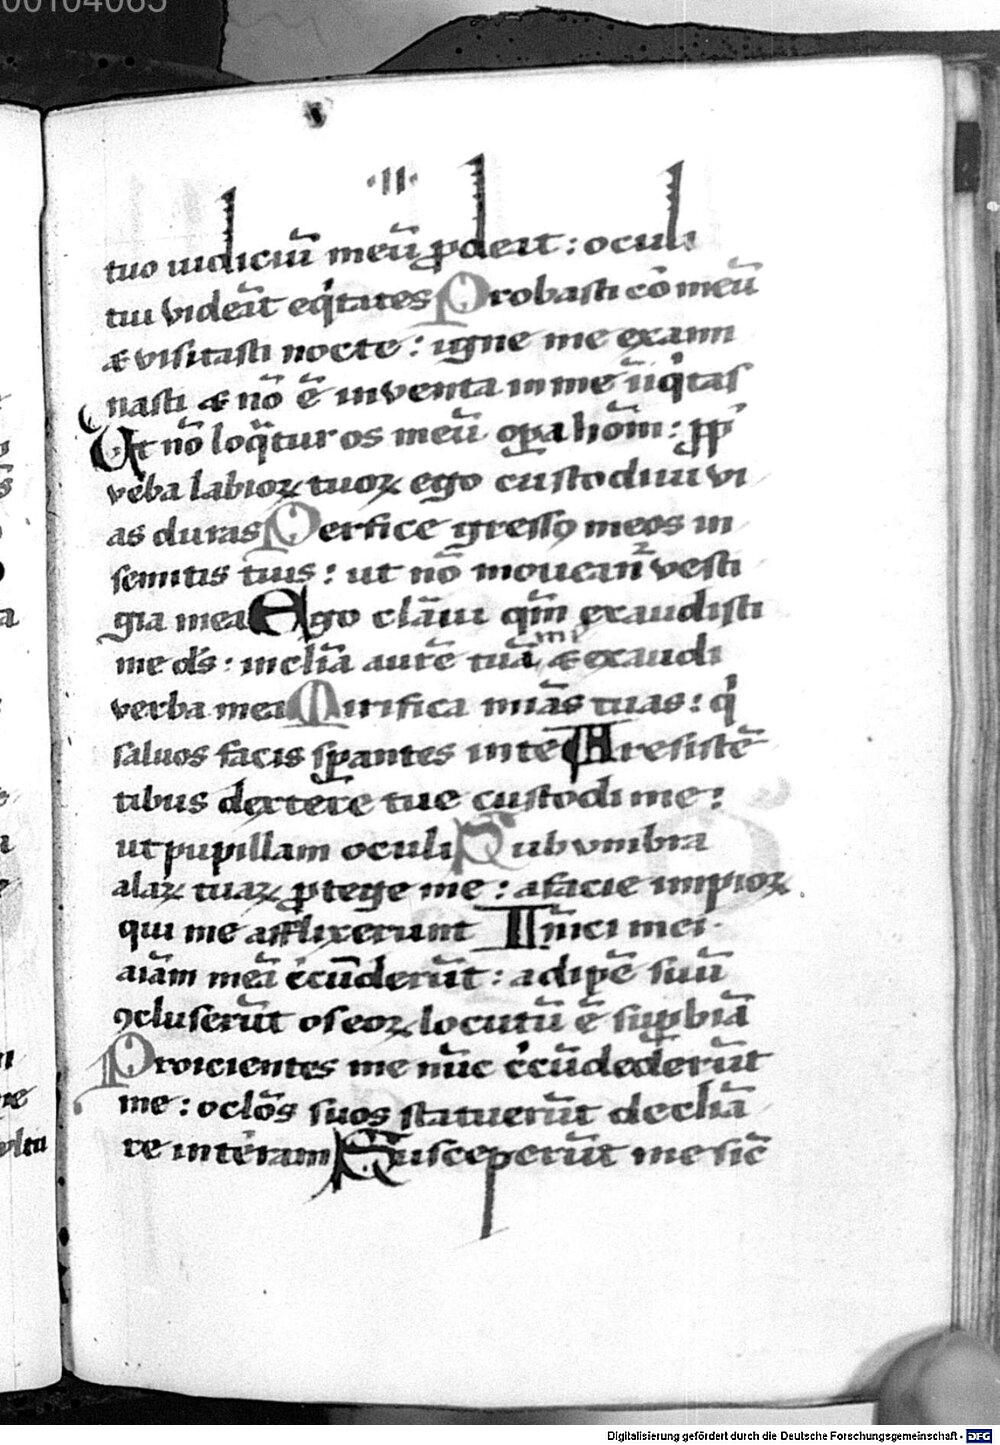 00104065
·II·
tuo iudiciū meū ꝓdeat : oculi
tui videāt eq̇tates Probasti cō meū
⁊ visitasti nocte : igne me exami
nasti ⁊ nō ē inventa in me iīiq̇tas
Ut nō loq̄tur os meū oꝑa hōim : ꝓp̄
v̄ba labioꝝ tuoꝝ ego custodiui vi
as duras Perfice gressꝰ meos in
semitis tuis : ut nō moueant᷑ vesti
gia mea Ego clāui qm̄ exaudisti
me ds̄ : inclīa aurē tuā mi ⁊ exaudi
verba mea Mirifica mīas tuas : q̇
saluos facis sꝑantes in te A resistē
tibus dextere tue custodi me :
ut pupillam oculi Sub vmbra
alaꝝ tuaꝝ ꝓtege me : a facie impioꝝ
qui me afflixerunt Inīici mei
aīam meā c̄cūderūt : adipē suū
ꝯcluserūt os eoꝝ locutū ē suꝑbiā
Proicientes me nūc c̄cūdederūt
me : oclōs suos statuerūt declīa
re in terram Susceperūt me sic̄
Digitalisierung gefördert durch die Deutsche Forschungsgemeinschaft - DFG